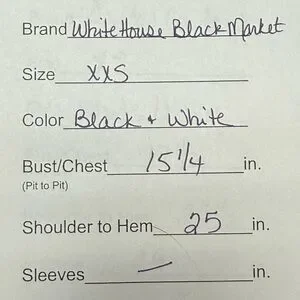 Brand White House Black Market
Size XXS
Color Black + White
Bust/Chest 15 1/4 in.
(Pit to Pit)
Shoulder to Hem 25 in.
Sleeves — in.